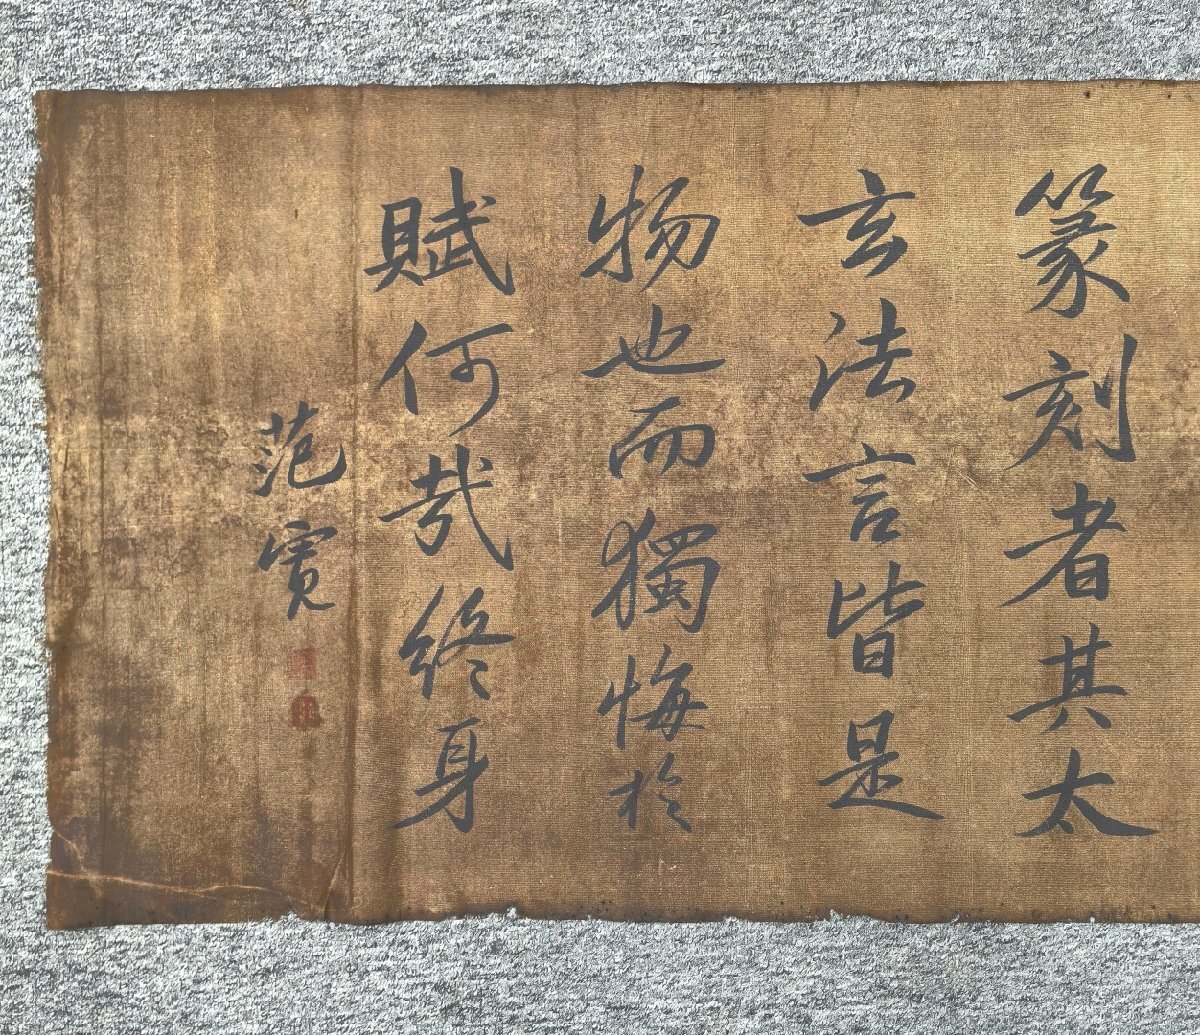 篆刻者其太
玄法言皆是
物也而獨悔於
賦何哉終身
范寬